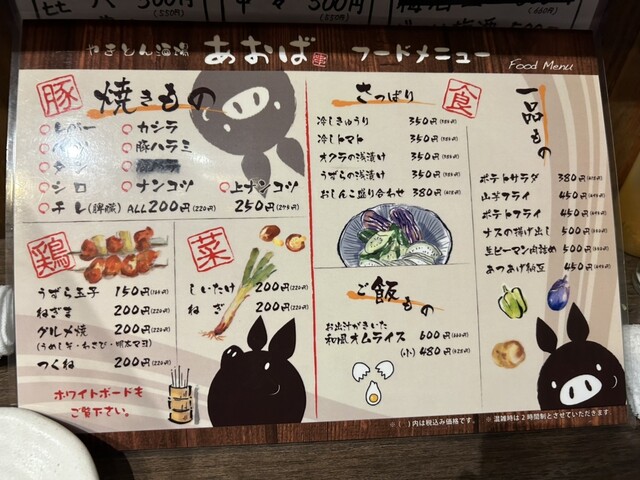 500円
(550円)
500円
(550円)
やきとん酒場 あおば フードメニュー
Food Menu
豚 焼きもの
レバー カシラ
豚ハラミ
タン
シロ ナンコツ 上ナンコツ
チレ(脾臓) ALL200円(220円) 250円(275円)
鶏
うずら玉子 150円(165円)
ねぎま 200円(220円)
グルメ焼 200円(220円)
(うめしそ・わさび・明太マヨ)
つくね 200円(220円)
ホワイトボードも
ご覧下さい。
菜
しいたけ 200円(220円)
ねぎ 200円(220円)
さっぱり
冷しきゅうり 350円
冷しトマト 350円
オクラの浅漬け 350円
うずらの浅漬け 350円
おしんこ盛り合わせ 380円
ご飯もの
お出汁がきいた
和風オムライス 600円(660円)
(小) 480円(528円)
食 一品もの
ポテトサラダ 380円
山芋フライ 450円
ポテトフライ 450円
ナスの揚げ出し 500円
生ピーマン肉詰め 500円
あつあげ納豆 450円
※( )内は税込み価格です。 ※混雑時は2時間制とさせていただきます